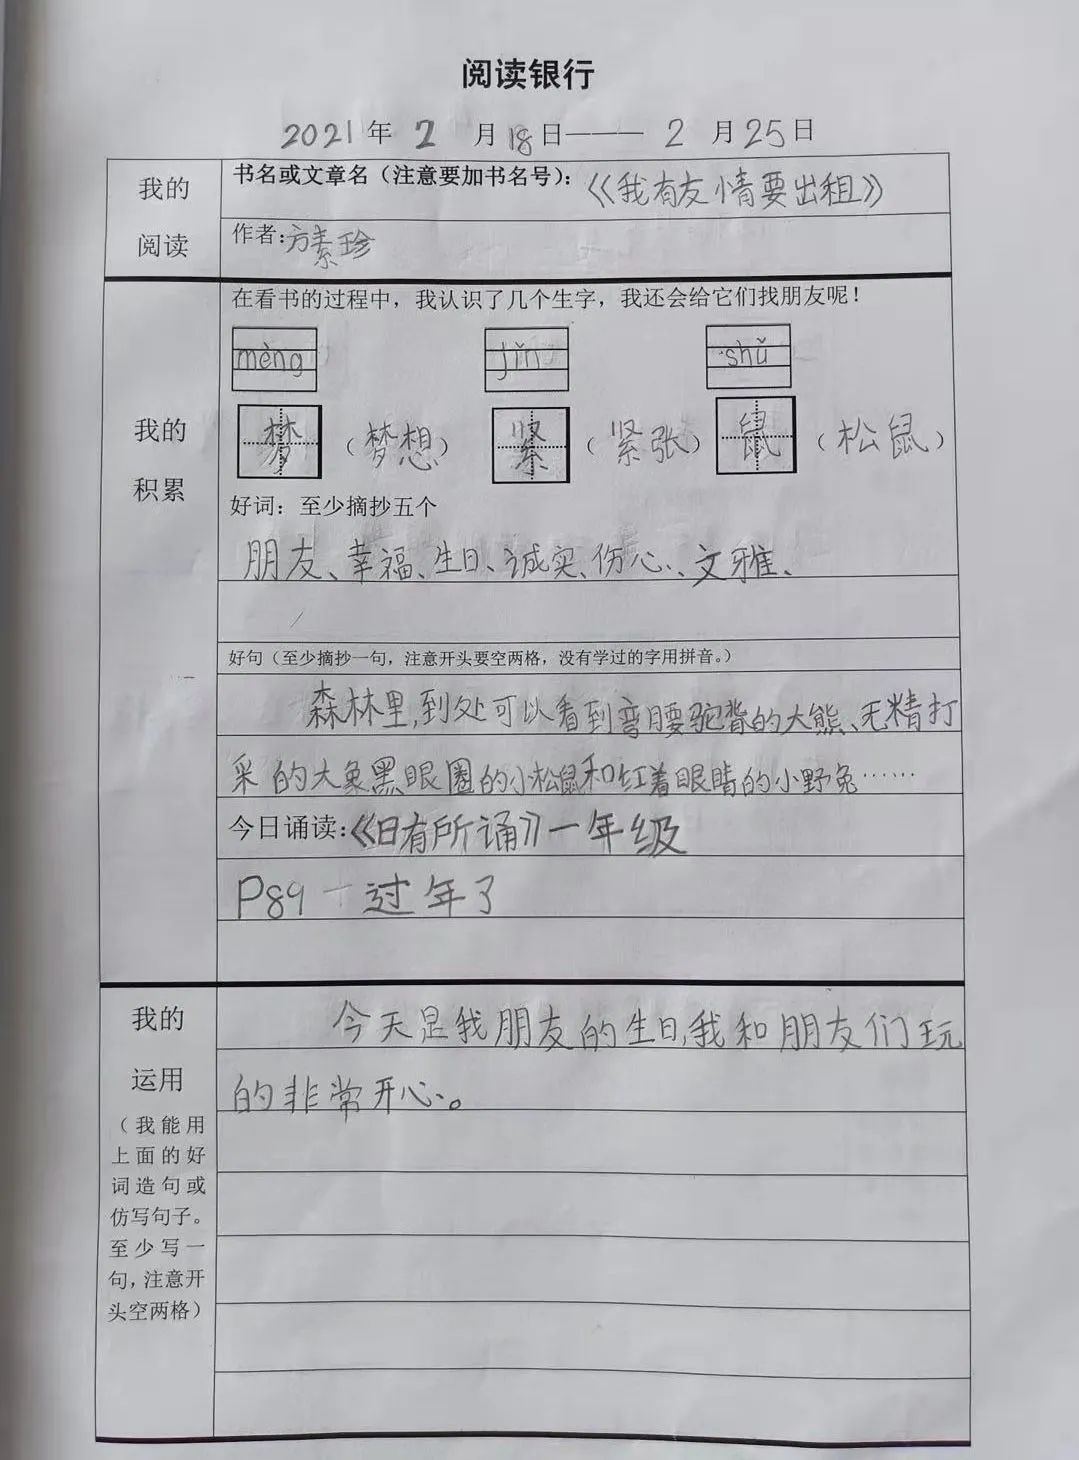 阅读银行
2021年2月18日———2月25日
我的
阅读
书名或文章名（注意要加书名号）：《我有友情要出租》
作者：方素珍
我的
积累
在看书的过程中，我认识了几个生字，我还会给它们找朋友呢！
mèng jǐn shǔ
梦（梦想） 紧（紧张） 鼠（松鼠）
好词：至少摘抄五个
朋友、幸福、生日、诚实、伤心、文雅、
好句（至少摘抄一句，注意开头要空两格，没有学过的字用拼音。）
森林里，到处可以看到弯腰驼背的大熊、无精打
采的大象黑眼圈的小松鼠和红着眼睛的小野兔……
今日诵读：《日有所诵》一年级
P89一过年了
我的
运用
（我能用
上面的好
词造句或
仿写句子。
至少写一
句，注意开
头空两格）
今天是我朋友的生日，我和朋友们玩
的非常开心。